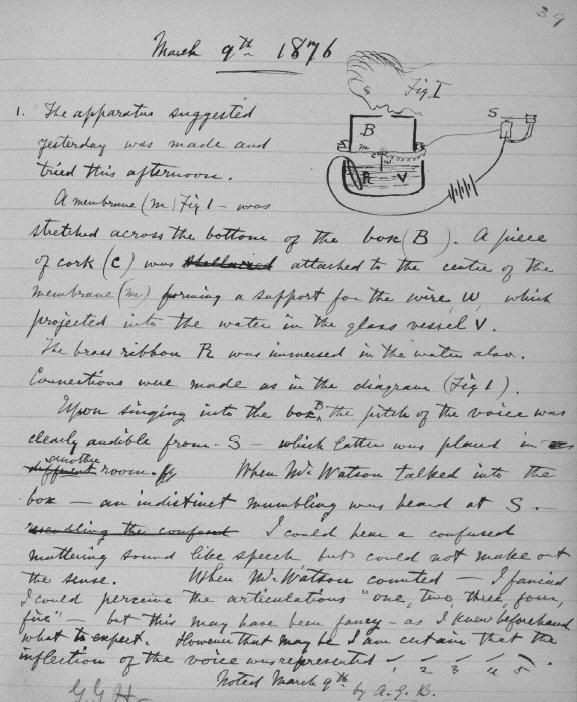 39
March 9th 1876
Fig I
1. The apparatus suggested
yesterday was made and
tried this afternoon.
A membrane (m) Fig 1 - was
stretched across the bottom of the box (B). A piece
of cork (c) was attached to the centre of the
membrane (m) forming a support for the wire, W, which
projected into the water in the glass vessel V.
The brass ribbon R was immersed in the water also.
Connections were made as in the diagram (Fig 1).
Upon singing into the box B the pitch of the voice was
clearly audible from - S - which latter was placed in
another
different room. When Mr. Watson talked into the
box — an indistinct mumbling was heard at S. -
resembling the confused I could hear a confused
muttering sound like speech but could not make out
the sense. When Mr. Watson counted — I fancied
I could perceive the articulations "one, two, three, four,
five" - but this may have been fancy - as I knew beforehand
what to expect. However that may be I am certain that the
inflection of the voice was represented
1 2 3 4 5.
Noted March 9th by A.G.B.
G.G.H.
B
m
c
w
R
V
S